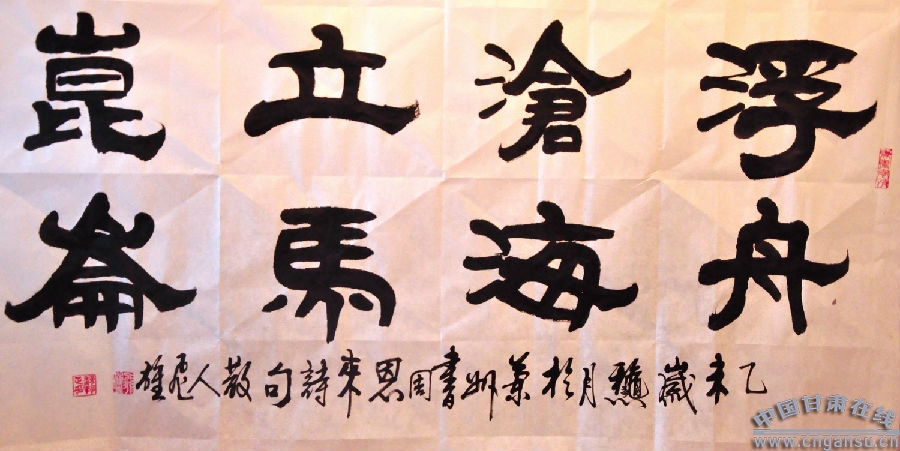 浮舟
滄海
立馬
崑崙
乙未歲龝月於蘭州書周恩來詩句散人雄
中国甘肃在线
www.cngansu.cn